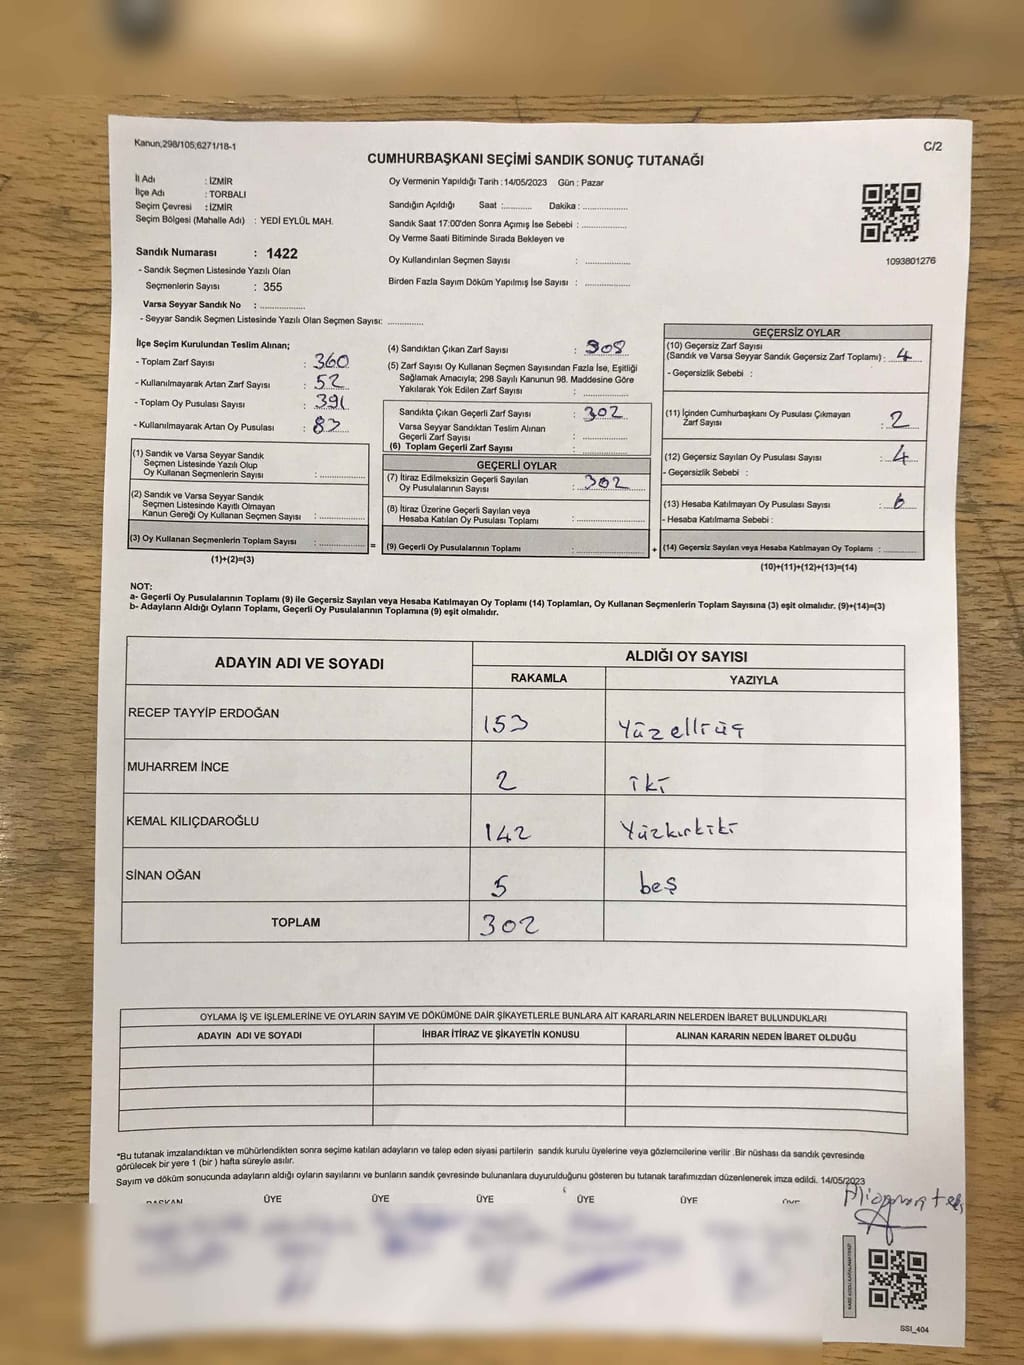 Kanun;298/105;6271/18-1
C/2
CUMHURBAŞKANI SEÇİMİ SANDIK SONUÇ TUTANAĞI
İl Adı : İZMİR
İlçe Adı : TORBALI
Seçim Çevresi : İZMİR
Seçim Bölgesi (Mahalle Adı) : YEDİ EYLÜL MAH.
Oy Vermenin Yapıldığı Tarih : 14/05/2023 Gün : Pazar
Sandığın Açıldığı Saat :............ Dakika : ..................
Sandık Saat 17:00'den Sonra Açımış İse Sebebi : ..................
Oy Verme Saati Bitiminde Sırada Bekleyen ve
Oy Kullandırılan Seçmen Sayısı : ..................
Birden Fazla Sayım Döküm Yapılmış İse Sayısı : ..................
1093801276
Sandık Numarası : 1422
- Sandık Seçmen Listesinde Yazılı Olan
Seçmenlerin Sayısı : 355
Varsa Seyyar Sandık No : ..................
- Seyyar Sandık Seçmen Listesinde Yazılı Olan Seçmen Sayısı: ..............
İlçe Seçim Kurulundan Teslim Alınan;
- Toplam Zarf Sayısı : 360
- Kullanılmayarak Artan Zarf Sayısı : 52
- Toplam Oy Pusulası Sayısı : 391
- Kullanılmayarak Artan Oy Pusulası : 83
(1) Sandık ve Varsa Seyyar Sandık
Seçmen Listesinde Yazılı Olup
Oy Kullanan Seçmenlerin Sayısı : ..................
(2) Sandık ve Varsa Seyyar Sandık
Seçmen Listesinde Kayıtlı Olmayan
Kanun Gereği Oy Kullanan Seçmen Sayısı : ..................
(3) Oy Kullanan Seçmenlerin Toplam Sayısı : ..................
(1)+(2)=(3)
=
(4) Sandıktan Çıkan Zarf Sayısı : 308
(5) Zarf Sayısı Oy Kullanan Seçmen Sayısından Fazla İse, Eşitliği
Sağlamak Amacıyla; 298 Sayılı Kanunun 98. Maddesine Göre
Yakılarak Yok Edilen Zarf Sayısı : ..................
Sandıkta Çıkan Geçerli Zarf Sayısı : 302
Varsa Seyyar Sandıktan Teslim Alınan
Geçerli Zarf Sayısı : ..................
(6) Toplam Geçerli Zarf Sayısı : ..................
GEÇERLİ OYLAR
(7) İtiraz Edilmeksizin Geçerli Sayılan
Oy Pusulalarının Sayısı : 302
(8) İtiraz Üzerine Geçerli Sayılan veya
Hesaba Katılan Oy Pusulası Toplamı : ..................
(9) Geçerli Oy Pusulalarının Toplamı : ..................
+
GEÇERSİZ OYLAR
(10) Geçersiz Zarf Sayısı
(Sandık ve Varsa Seyyar Sandık Geçersiz Zarf Toplamı) : 4
- Geçersizlik Sebebi :
(11) İçinden Cumhurbaşkanı Oy Pusulası Çıkmayan
Zarf Sayısı : 2
(12) Geçersiz Sayılan Oy Pusulası Sayısı : 4
- Geçersizlik Sebebi :
(13) Hesaba Katılmayan Oy Pusulası Sayısı : 6
- Hesaba Katılmama Sebebi :
(14) Geçersiz Sayılan veya Hesaba Katılmayan Oy Toplamı : ............
(10)+(11)+(12)+(13)=(14)
NOT:
a- Geçerli Oy Pusulalarının Toplamı (9) ile Geçersiz Sayılan veya Hesaba Katılmayan Oy Toplamı (14) Toplamları, Oy Kullanan Seçmenlerin Toplam Sayısına (3) eşit olmalıdır. (9)+(14)=(3)
b- Adayların Aldığı Oyların Toplamı, Geçerli Oy Pusulalarının Toplamına (9) eşit olmalıdır.
ADAYIN ADI VE SOYADI
ALDIĞI OY SAYISI
RAKAMLA YAZIYLA
RECEP TAYYİP ERDOĞAN 153 Yüzelliüç
MUHARREM İNCE 2 iki
KEMAL KILIÇDAROĞLU 142 Yüzkırkiki
SİNAN OĞAN 5 beş
TOPLAM 302
OYLAMA İŞ VE İŞLEMLERİNE VE OYLARIN SAYIM VE DÖKÜMÜNE DAİR ŞİKAYETLERLE BUNLARA AİT KARARLARIN NELERDEN İBARET BULUNDUKLARI
ADAYIN ADI VE SOYADI İHBAR İTİRAZ VE ŞİKAYETİN KONUSU ALINAN KARARIN NEDEN İBARET OLDUĞU
*Bu tutanak imzalandıktan ve mühürlendikten sonra seçime katılan adayların ve talep eden siyasi partilerin sandık kurulu üyelerine veya gözlemcilerine verilir .Bir nüshası da sandık çevresinde
görülecek bir yere 1 (bir ) hafta süreyle asılır.
Sayım ve döküm sonucunda adayların aldığı oyların sayılarını ve bunların sandık çevresinde bulunanlara duyurulduğunu gösteren bu tutanak tarafımızdan düzenlenerek imza edildi. 14/05/2023
BAŞKAN ÜYE ÜYE ÜYE ÜYE ÜYE ÜYE
SSI_404